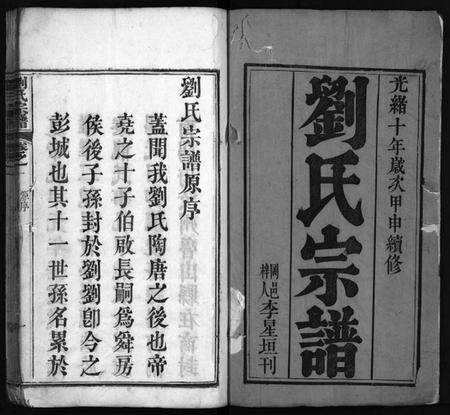 光緒十年歲次甲申續修
劉氏宗譜
梓人李星垣刊
劉氏宗譜原序
蓋聞我劉氏陶唐之後也帝
堯之十子伯啟長嗣為舜房
侯後子孫封於劉劉卽今之
彭城也其十一世孫名累於
劉氏宗譜
原序